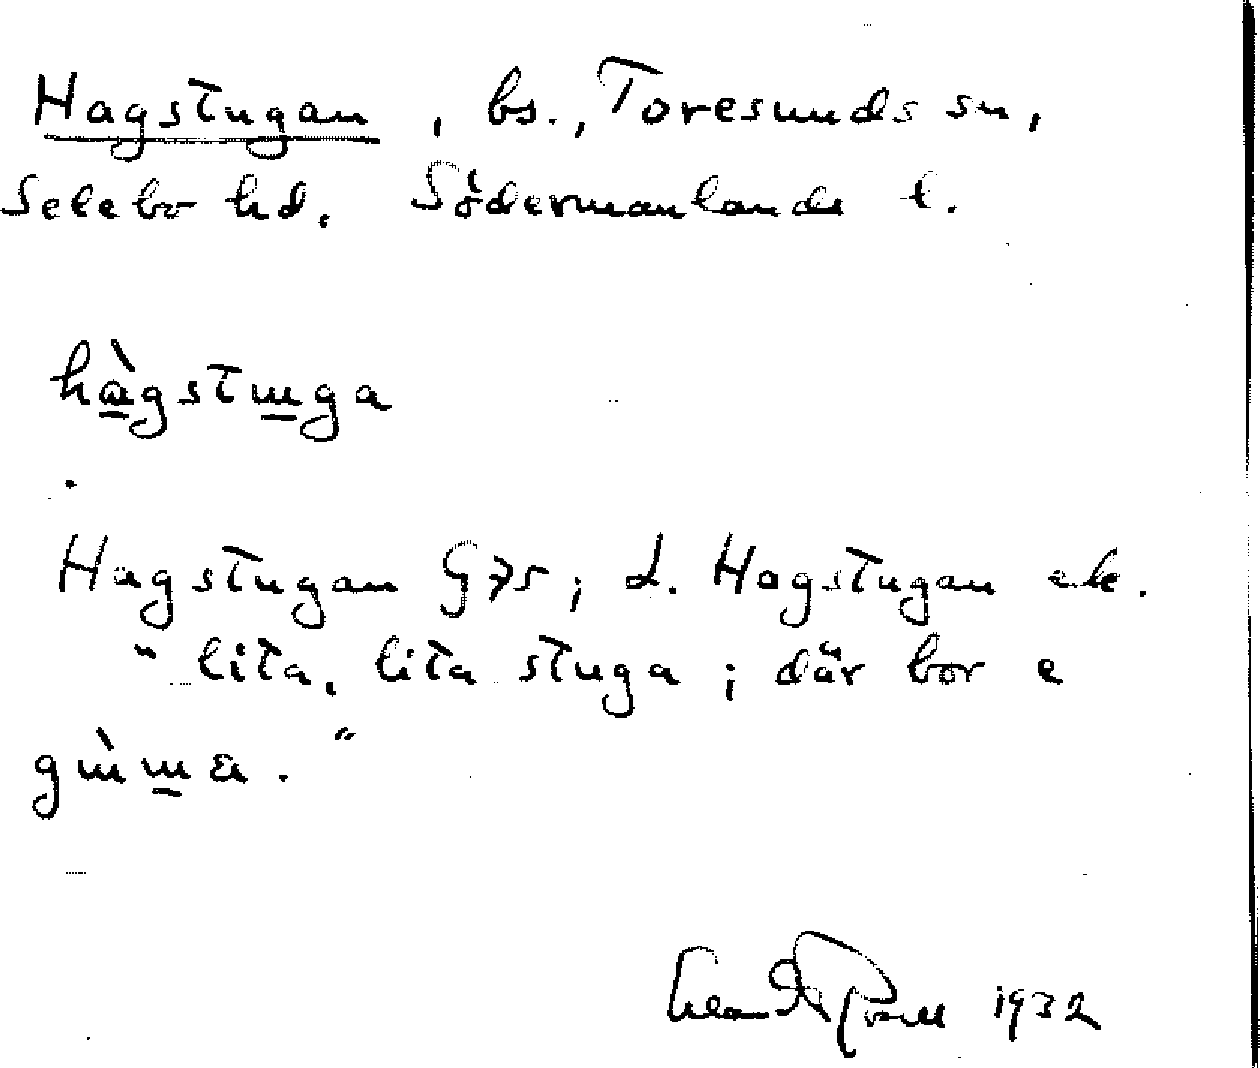 Hagstugan, bs., Toresunds sn,
Selebo hd. Södermanlands l.
hàgstuga
Hagstugan G75; d. Hagstugan ek.
"lita, lita stuga; där bor e
gùmma."
1932